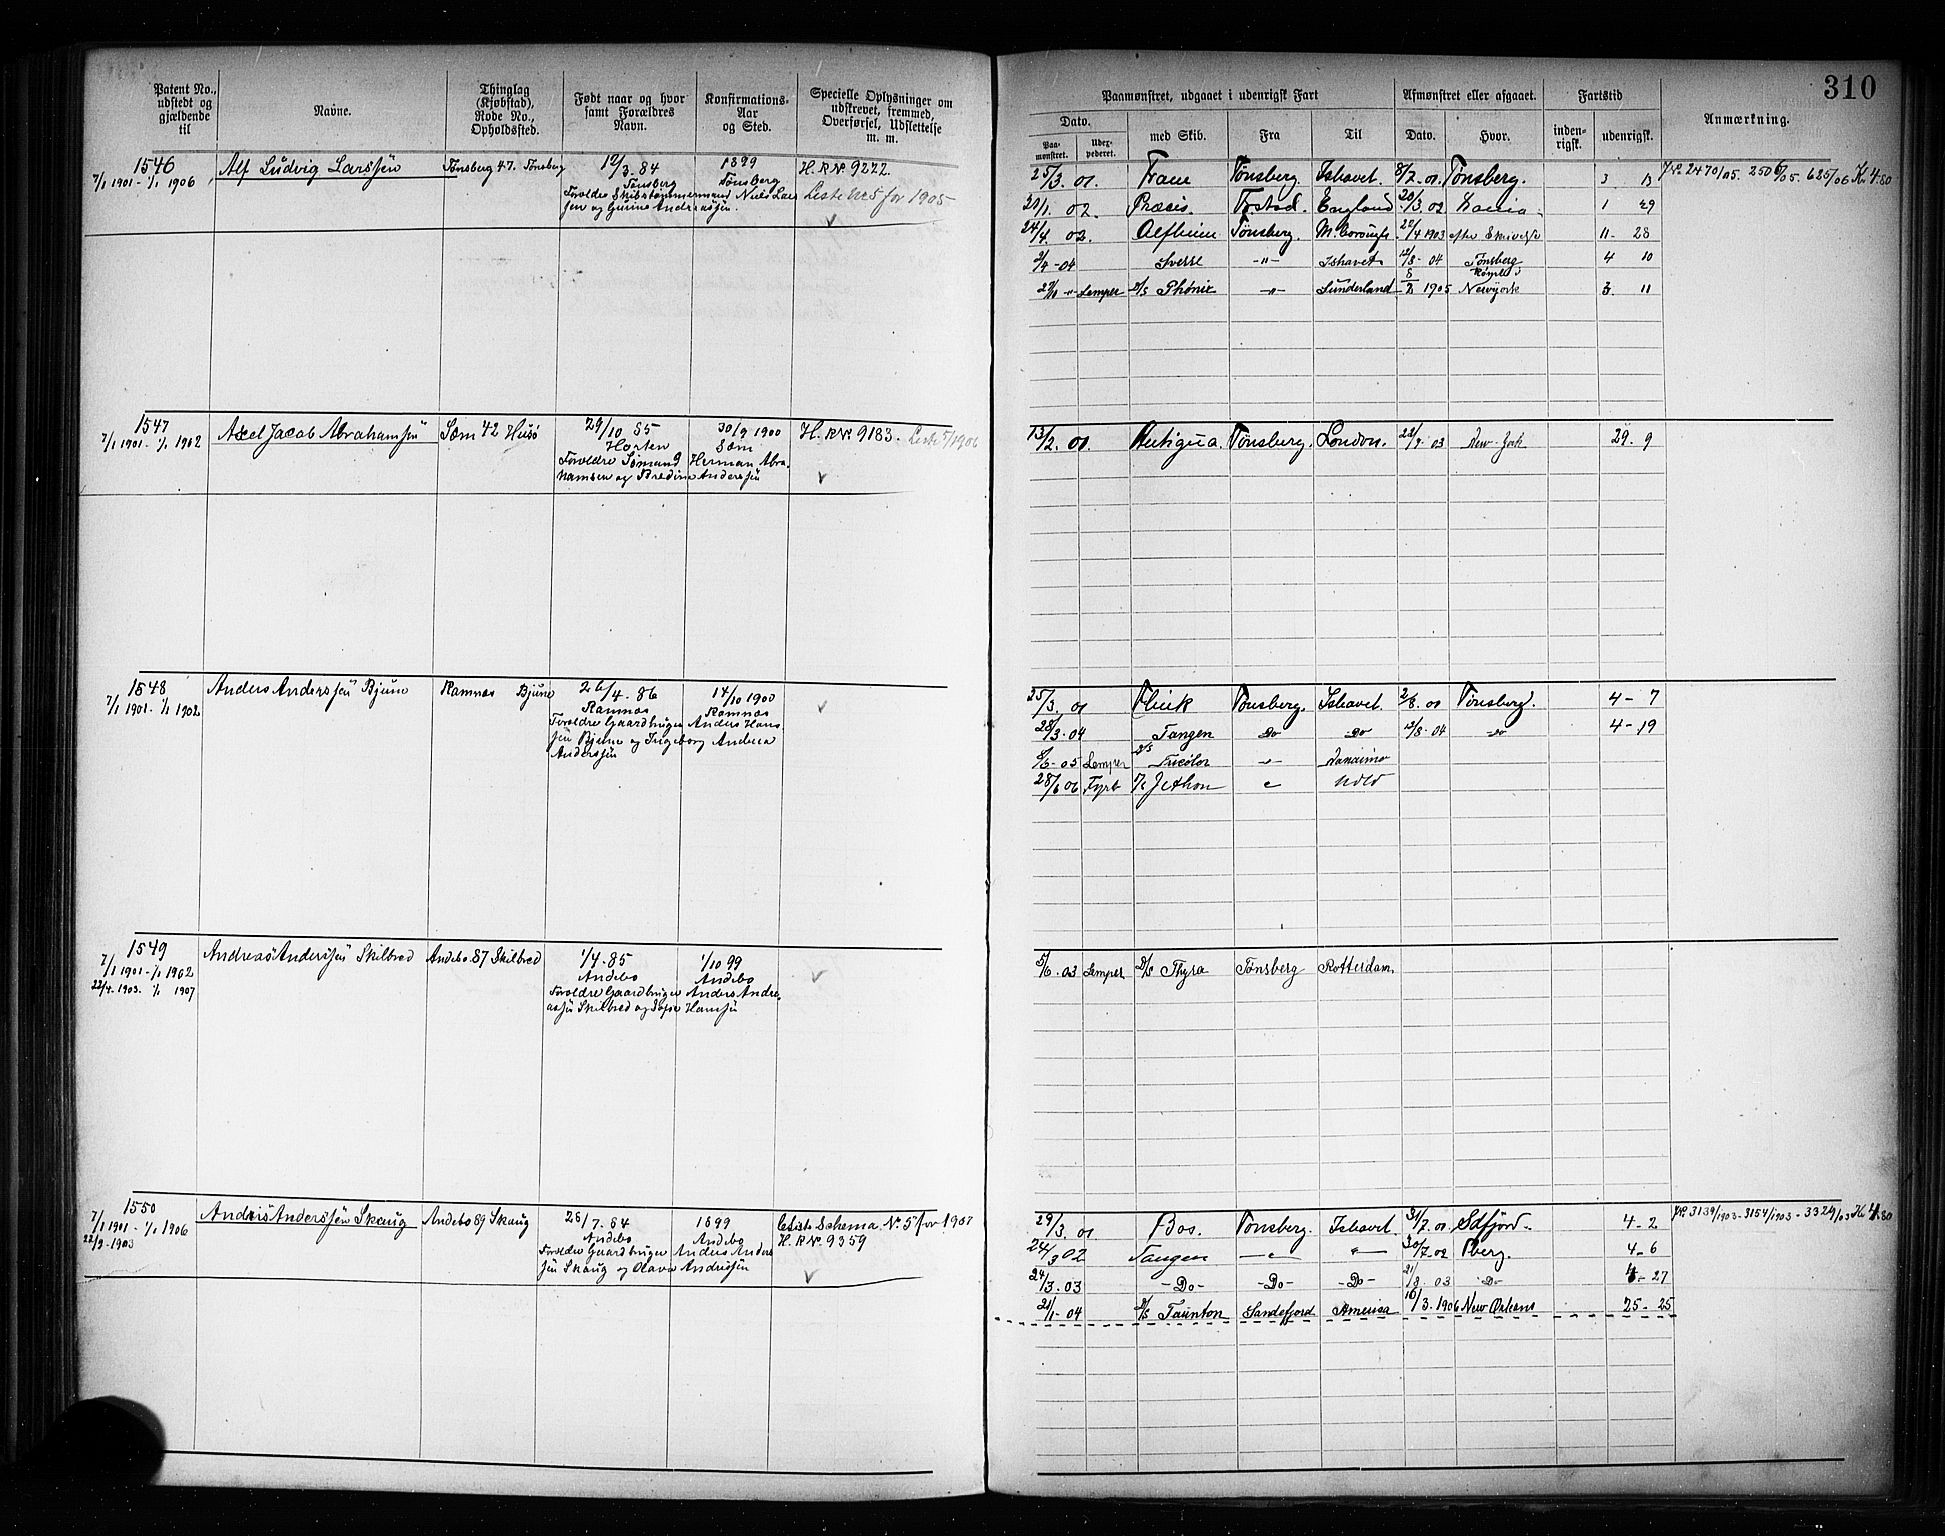 310
Patent No., udstedt og gjældende til
Navne.
Thinglag (Kjøbstad), Rode No., Opholdssted.
Født naar og hvor samt Forældres Navn.
Konfirmations-Aar og Sted.
Specielle Oplysninger om udskrevet, fremmed, Overførsel, Udslettelse m. m.
Paamønstret, udgaaet i udenrigsk Fart
Afmønstret eller afgaaet.
Fartstid
Anmærkning.
Dato.
Paa-mønstret.
Uder-pederet.
med Skib.
Fra
Til
Dato.
Hvor.
inden-rigsk.
udenrigsk.
1546
7/1 1901 - 1/1 1906
Alf Ludvig Larssen
Tønsberg 47. Tønsberg
12/3. 84
Tønsberg
Forældre Skibstømmermand Niels Lars
sen og Gurine Andreassen.
1899
Tønsberg
H. R. Nº 9222.
Liste No 5 for 1905
25/3. 01. Tønsberg. Ishavet. 8/7. 01. Tønsberg. 3 13
21/1. 02. Præcis. England 20/3. 02 1 29
24/4. 02. Alfheim Tønsberg. 29/4 1903 11 - 28
04 Sverre -"- Ishavet 12/8 - 04 Tønsberg 4 10
Lemper D/S Phønix -"- Sunderland 1905 Newyork 3. 11
1547
7/1 1901 - 1/1 1902
Axel Jacob Abrahamsen
Sæm 42 Husø
29/10 85
Horten
Forældre Sømand Herman Abra-
hamsen og Bredine Anderssen
30/9 1900
Sæm
H. R. Nº 9183. Liste 5/1906
13/2. 01. Antigua. Tønsberg. London. 03 New-York 29 - 9
1548
7/1 1901 - 1/1 1902
Anders Anderssen Bjune
Ramnæs Bjune
26/4. 86
Ramnæs
Forældre Gaardbruger Anders Hans
sen Bjune og Ingeborg Andrea
Anderssen
14/10 1900
Ramnæs
25/3. 01 Tønsberg. Ishavet. 2/8. 01 Tønsberg. 4 - 7
28/3. 04 Tangen Do Do 12/8. 04 Do 4 - 19
6/6 - 05 Lemper D/S Tricolor -"-
28/6 06 Fyrb
1549
7/1 1901 - 1/1 1902
22/4. 1903. 1/1 1907
Andreas Anderssen Skilbred
Andebo. 87 Skilbred
1/4. 85
Andebo
Forældre Gaardbruger Anders Andre-
assen Skilbred og Sofie Hanssen
1/10 99
Andebo
5/6. 03 Lemper D/S Thyra Tønsberg Rotterdam.
1550
7/1 1901 - 1/1 1906
22/9 - 1903
Anders Anderssen Skaug
Andebo 89 Skaug
26/7. 84
Andebo
Forældre Gaardbruger Anders Anders
sen Skaug og Olava Andrissen
1899
Andebo
Liste Schema. Nº 5 for 1907
H. R. Nº. 9359
29/3. 01 Bos. Tønsberg. Ishavet. 31/7. 01. Sdfjord. 4 - 2
24/3 02 Tangen 30/7. 02 Tberg. 4 - 6
24/3. 03 - Do - - Do - - Do - 21/8. 03 Do 4 - 27
21/1 - 04 D/S Taunton Sandefjord Amerika 16/3. 1906 New Orleans 25 - 25
3139/1903 - 3154/1903 - 3324/03 Kr 4.80